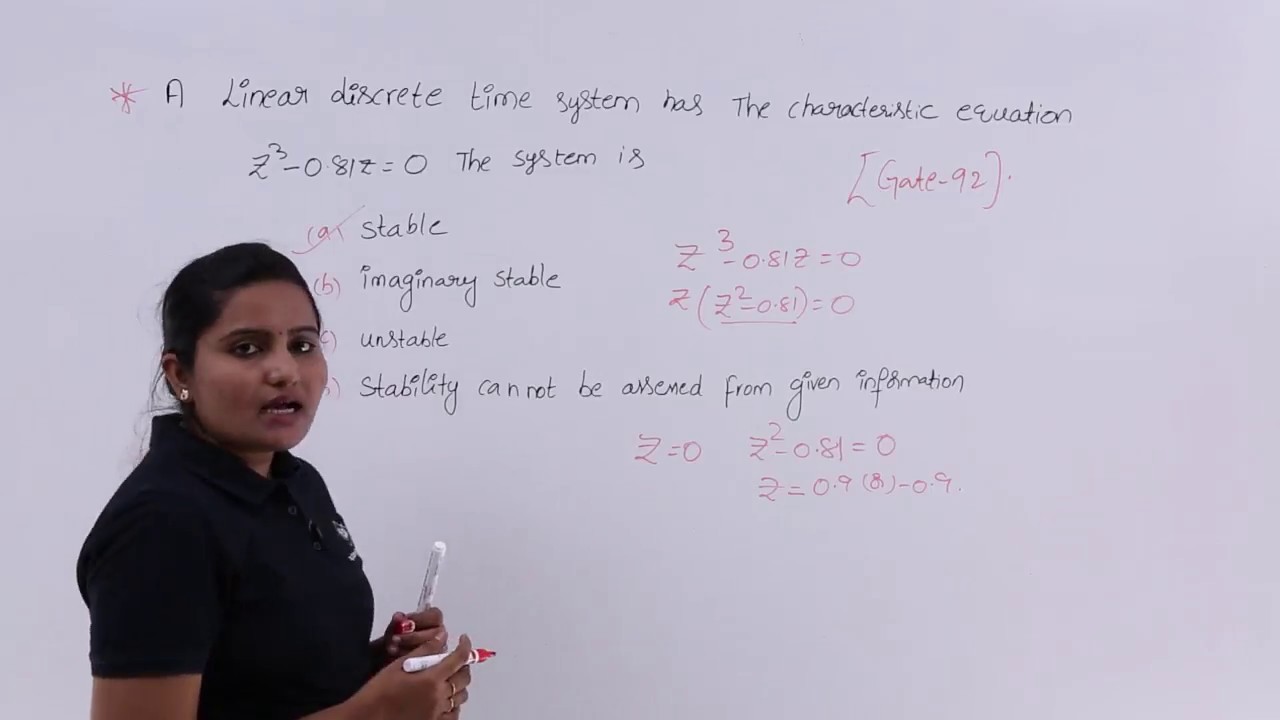 * A Linear discrete time system has The characteristic equation
z³-0.81z=0 The system is
[Gate-92].
(a) stable
(b) imaginary stable
c) unstable
) Stability can not be assessed from given information
z³-0.81z=0
z(z²-0.81)=0
z=0 z²-0.81=0
z=0.9 (&)-0.9.